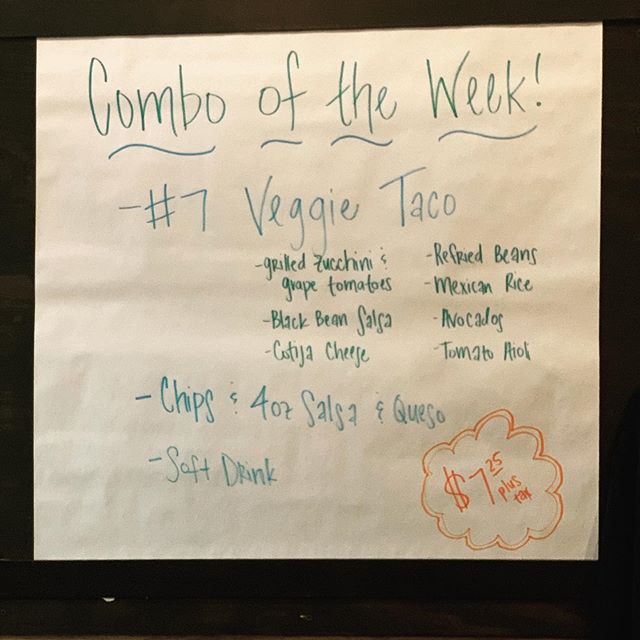 Combo of the Week!
-#7 Veggie Taco
-grilled zucchini &
grape tomatoes
-Black Bean Salsa
-Cotija Cheese
-Refried Beans
-Mexican Rice
-Avocados
-Tomato Aioli
-Chips & 4oz Salsa & Queso
-Soft Drink
$7 25
plus
tax